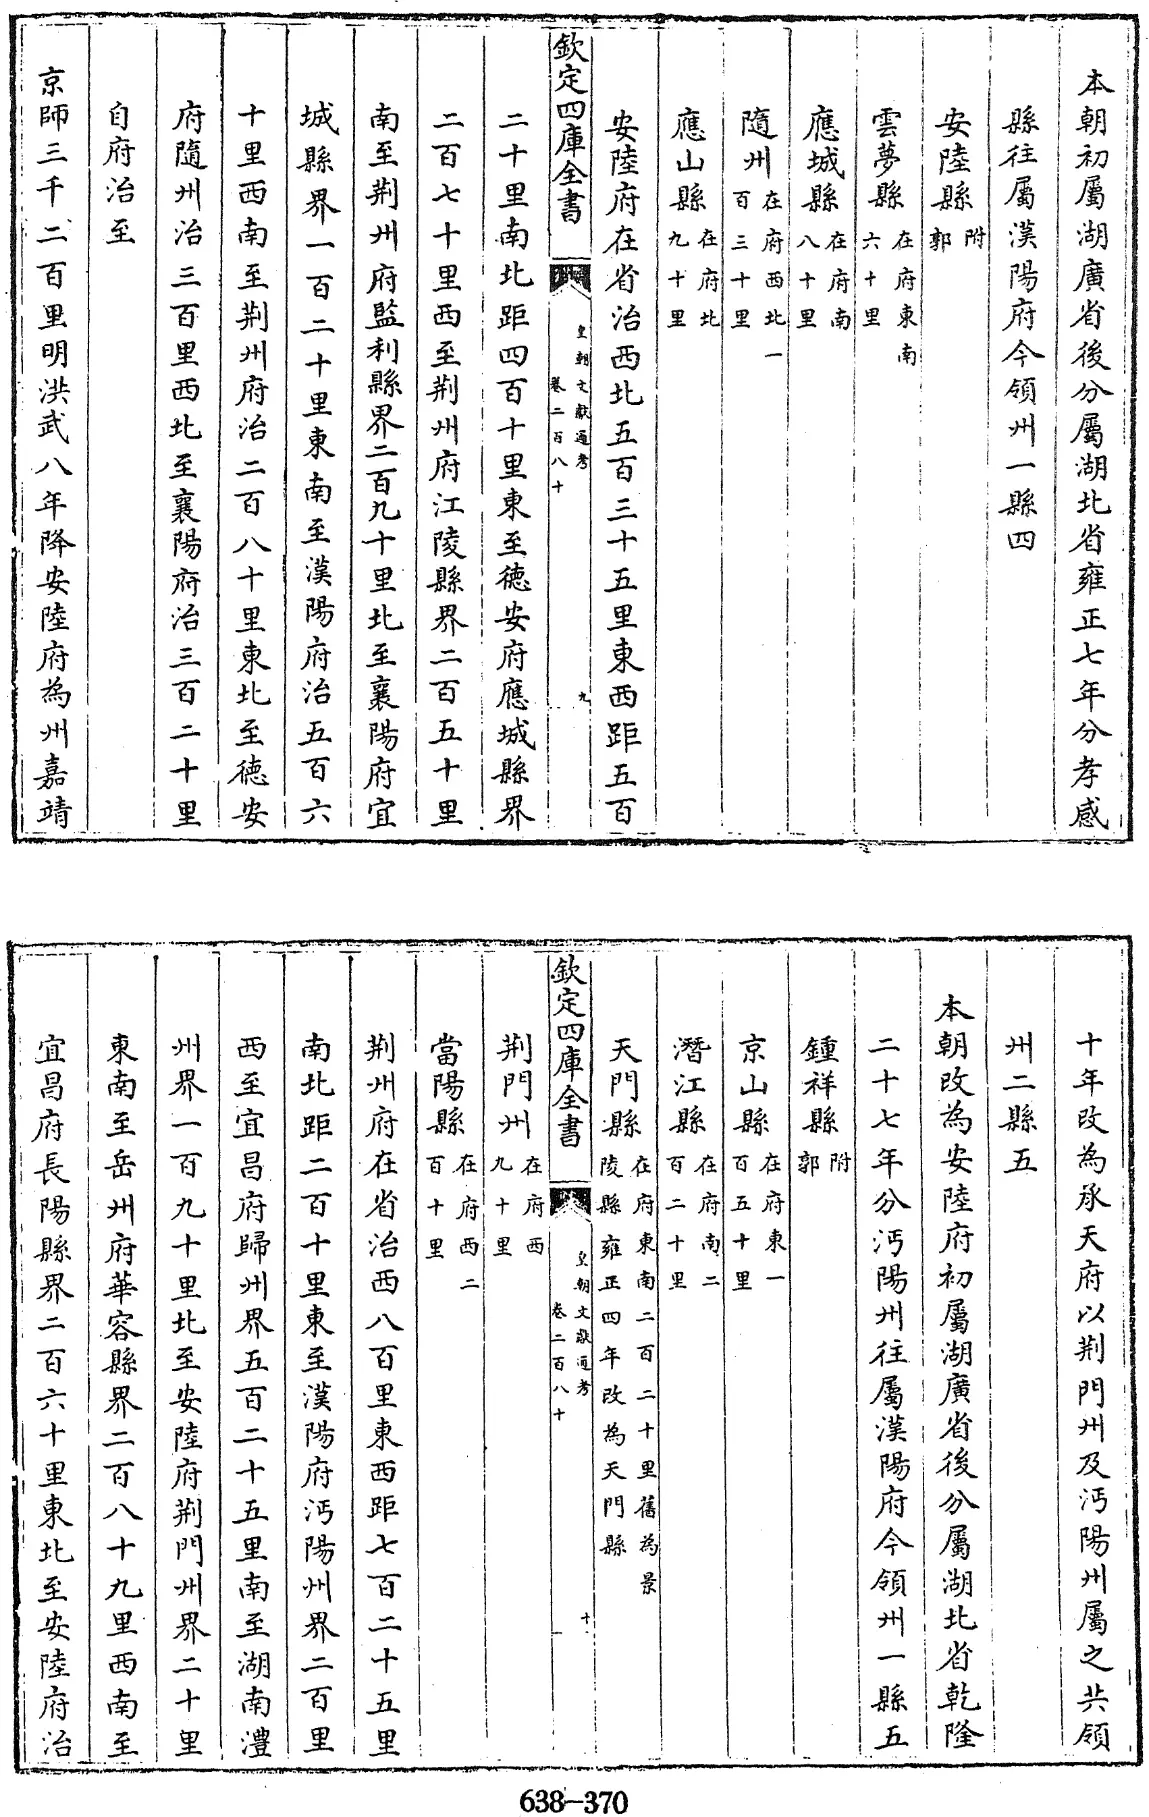 本朝初屬湖廣省後分屬湖北省雍正七年分孝感
縣往屬漢陽府今領州一縣四
安陸縣附郭
雲夢縣在府東南六十里
應城縣在府南八十里
隨州在府西北一百三十里
應山縣在府北九十里
安陸府在省治西北五百三十五里東西距五百
欽定四庫全書
皇朝文獻通考
卷二百八十
九
二十里南北距四百十里東至德安府應城縣界
二百七十里西至荆州府江陵縣界二百五十里
南至荆州府監利縣界二百九十里北至襄陽府宜
城縣界一百二十里東南至漢陽府治五百六
十里西南至荆州府治二百八十里東北至德安
府隨州治三百里西北至襄陽府治三百二十里
自府治至
京師三千二百里明洪武八年降安陸府為州嘉靖
十年改為承天府以荆門州及沔陽州屬之共領
州二縣五
本朝改為安陸府初屬湖廣省後分屬湖北省乾隆
二十七年分沔陽州往屬漢陽府今領州一縣五
鍾祥縣附郭
京山縣在府東一百五十里
潛江縣在府南二百二十里
天門縣在府東南二百二十里舊為景陵縣雍正四年改為天門縣
欽定四庫全書
皇朝文獻通考
卷二百八十
十
荆門州在府西九十里
當陽縣在府西二百十里
荆州府在省治西八百里東西距七百二十五里
南北距二百十里東至漢陽府沔陽州界二百里
西至宜昌府歸州界五百二十五里南至湖南澧
州界一百九十里北至安陸府荆門州界二十里
東南至岳州府華容縣界二百八十九里西南至
宜昌府長陽縣界二百六十里東北至安陸府治
638-370